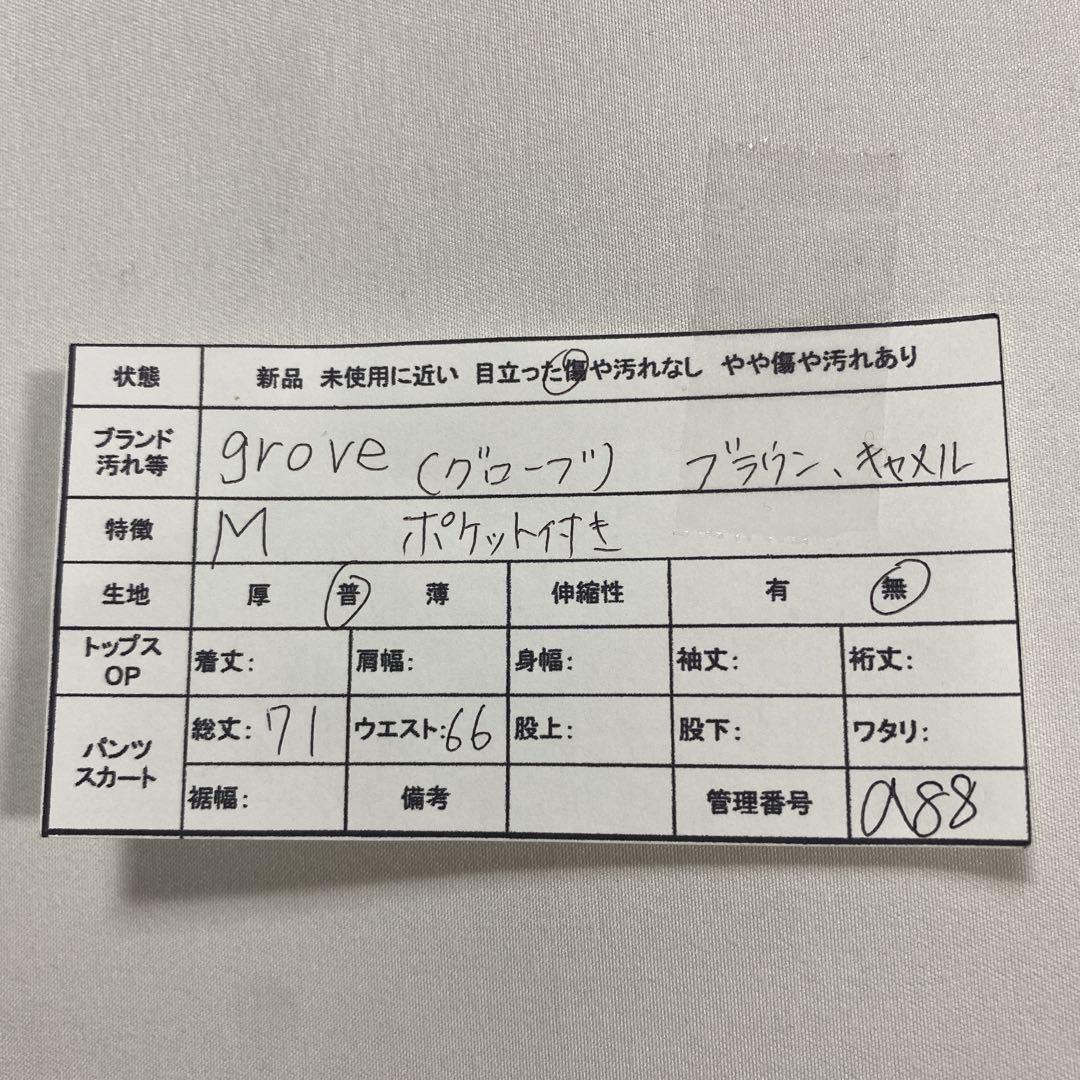 状態 新品 未使用に近い 目立った傷や汚れなし やや傷や汚れあり
ブランド
汚れ等 grove (グローブ) ブラウン、キャメル
特徴 M ポケット付き
生地 厚 普 薄 伸縮性 有 無
トップス
OP 着丈: 肩幅: 身幅: 袖丈: 裄丈:
パンツ
スカート 総丈: 71 ウエスト: 66 股上: 股下: ワタリ:
裾幅: 備考 管理番号 a88